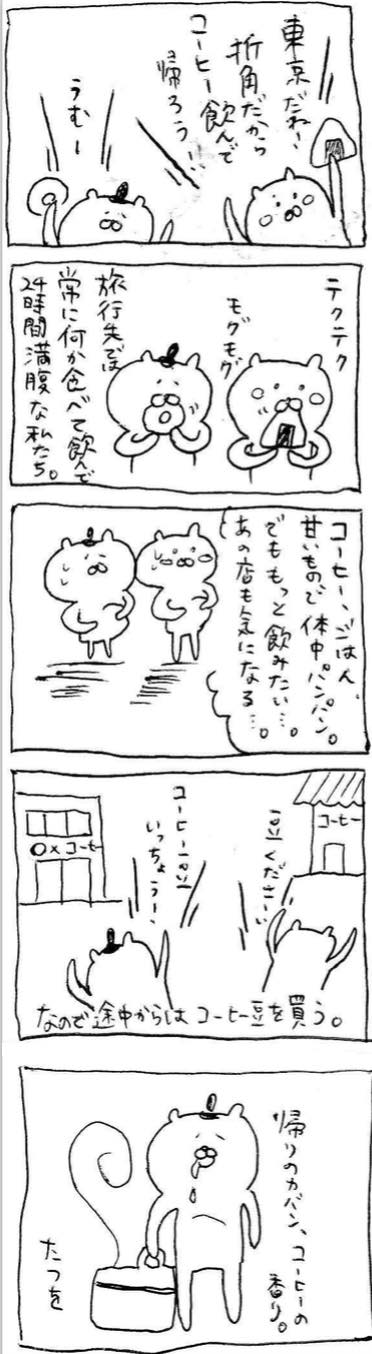 東京だねー、
折角だから
コーヒー飲んで
帰ろうー!
うむー
テクテク
モグモグ
旅行先では
常に何か食べて飲んで
24時間満腹な私たち。
コーヒー、ごはん、
甘いもので体中パンパン。
でももっと飲みたい…。
あの店も気になる…。
コーヒー
豆くださーい
コーヒー豆
いっちょうー、
○×コーヒー
なので途中からはコーヒー豆を買う。
帰りのカバン、コーヒーの
香り。
たつを